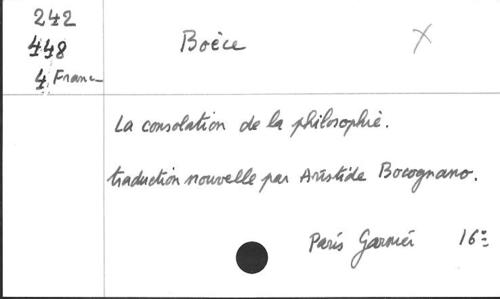 242
448
4 Franc
Boèce
X
La consolation de la philosophie.
traduction nouvelle par Aristide Bocognano.
Paris Garnier 16=